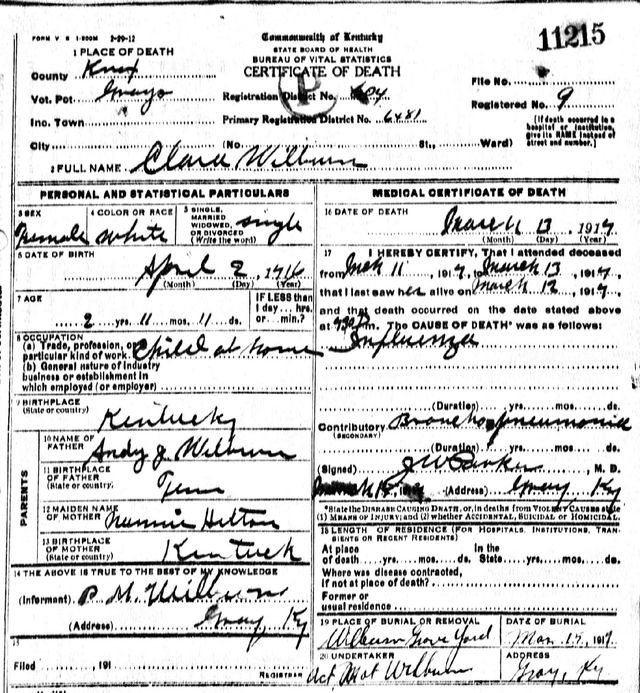 FORM V S 1-200M 2-29-12
Commonwealth of Kentucky
11215
STATE BOARD OF HEALTH
BUREAU OF VITAL STATISTICS
CERTIFICATE OF DEATH
1 PLACE OF DEATH
County Knox
Vot. Pct. Grays
Inc. Town
City
Registration District No. 604
Primary Registration District No. 6481
(No. St., Ward)
File No.
Registered No. 9
(If death occurred in a hospital or institution, give its NAME instead of street and number.)
2 FULL NAME Clara Wilburn
PERSONAL AND STATISTICAL PARTICULARS
3 SEX Female
4 COLOR OR RACE White
5 SINGLE, MARRIED WIDOWED, OR DIVORCED (Write the word) single
6 DATE OF BIRTH
April 2 1914
(Month) (Day) (Year)
7 AGE
2 yrs. 11 mos. 11 ds.
IF LESS than 1 day... hrs. or min.?
8 OCCUPATION
(a) Trade, profession, or particular kind of work. Child at home
(b) General nature of industry business or establishment in which employed (or employer)
9 BIRTHPLACE
(State or country) Kentucky
PARENTS
10 NAME OF FATHER Andy J Wilburn
11 BIRTHPLACE OF FATHER (State or country) Tenn
12 MAIDEN NAME OF MOTHER Nannie Helton
13 BIRTHPLACE OF MOTHER (State or country) Kentuck
14 THE ABOVE IS TRUE TO THE BEST OF MY KNOWLEDGE
(Informant) P M Wilburn
(Address) Gray, Ky
15
Filed 191
REGISTRAR
MEDICAL CERTIFICATE OF DEATH
16 DATE OF DEATH
March 13 1917
(Month) (Day) (Year)
17 I HEREBY CERTIFY, That I attended deceased
from Mch 11, 1917, to March 13, 1917,
that I last saw her alive on March 12, 1917,
and that death occurred on the date stated above
at m. The CAUSE OF DEATH* was as follows:
Influenza
(Duration) yrs. mos. ds.
Contributory Broncho pneumonia
(SECONDARY)
(Duration) yrs. mos. ds.
(Signed) J W Parker, M. D.
(Address) Gray Ky
*State the DISEASE CAUSING DEATH, or, in deaths from VIOLENT CAUSES state (1) MEANS OF INJURY; and (2) whether ACCIDENTAL, SUICIDAL or HOMICIDAL.
18 LENGTH OF RESIDENCE (FOR HOSPITALS, INSTITUTIONS, TRANSIENTS OR RECENT RESIDENTS)
At place of death yrs. mos. ds. In the State yrs. mos. ds.
Where was disease contracted, if not at place of death?
Former or usual residence
19 PLACE OF BURIAL OR REMOVAL
Wilburn Grove Yard
DATE OF BURIAL
Mar. 15, 1917
20 UNDERTAKER
Act Mat Wilburn
ADDRESS
Gray, Ky